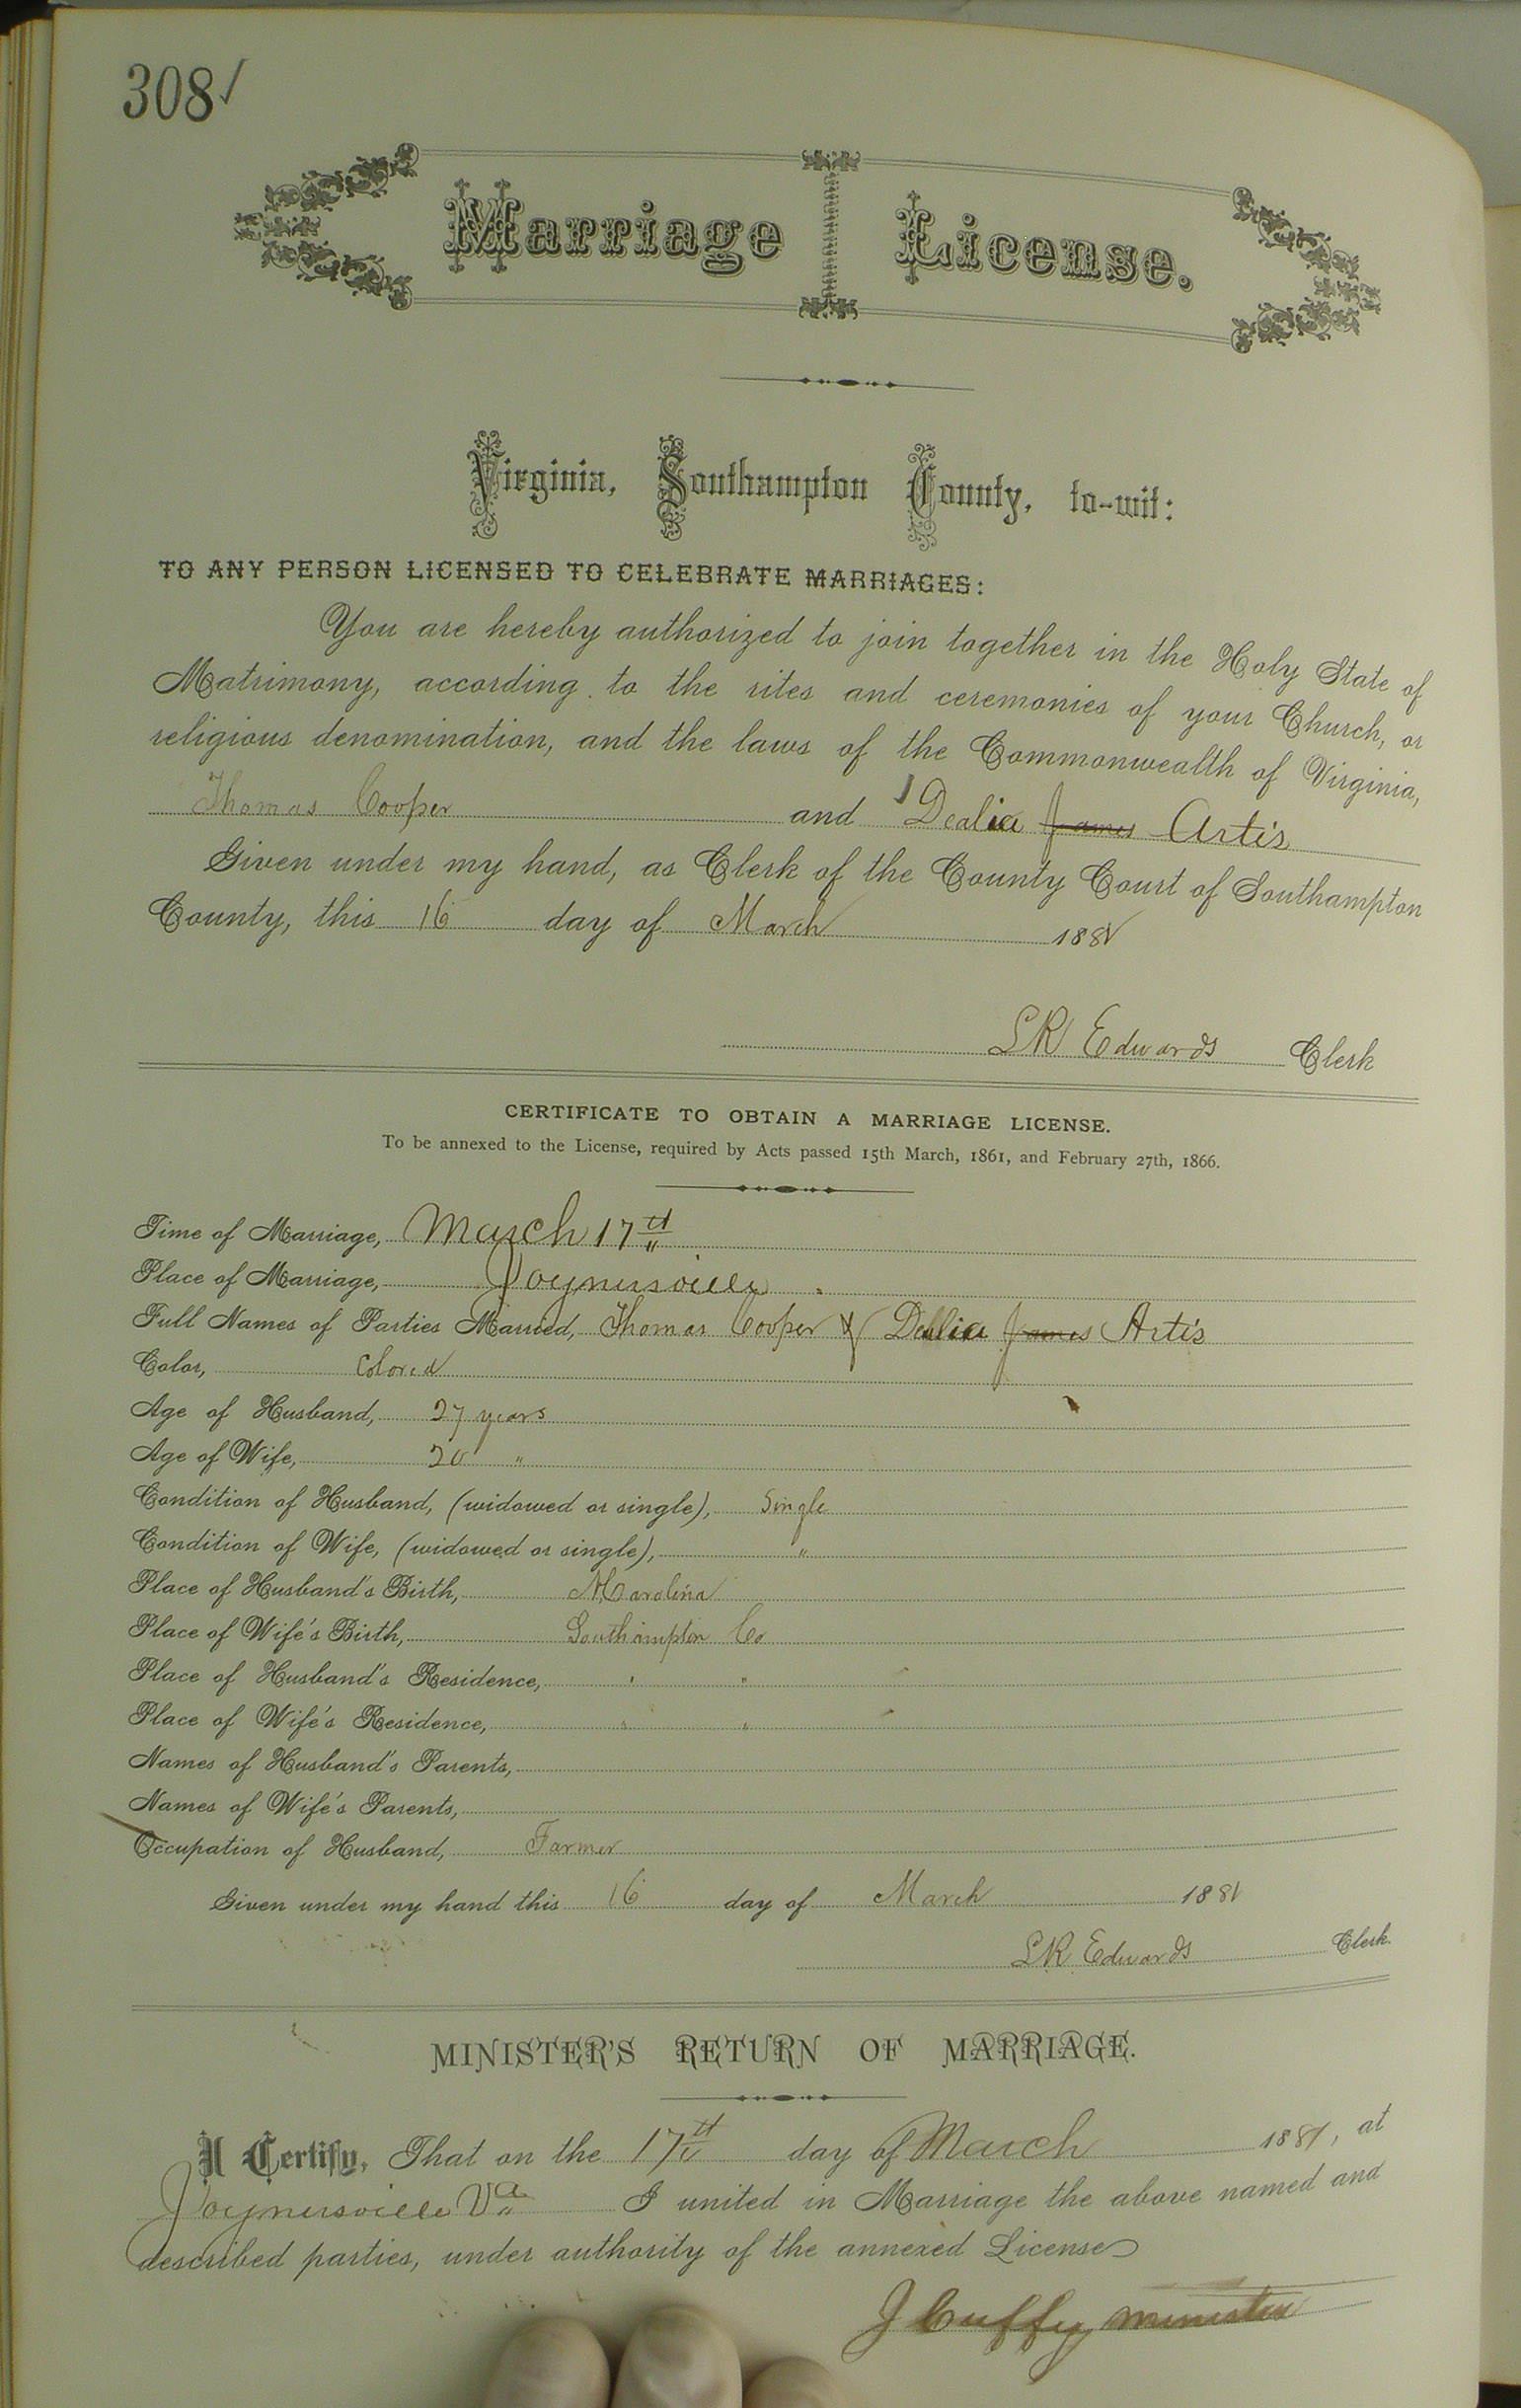 308✓
Marriage License.
Virginia, Southampton County, to-wit:
TO ANY PERSON LICENSED TO CELEBRATE MARRIAGES:
You are hereby authorized to join together in the Holy State of
Matrimony, according to the rites and ceremonies of your Church, or
religious denomination, and the laws of the Commonwealth of Virginia,
Thomas Cooper and Dealia James Artis
Given under my hand, as Clerk of the County Court of Southampton
County, this 16 day of March 1881
LR Edwards Clerk
CERTIFICATE TO OBTAIN A MARRIAGE LICENSE.
To be annexed to the License, required by Acts passed 15th March, 1861, and February 27th, 1866.
Time of Marriage, March 17th
Place of Marriage, Joynersville.
Full Names of Parties Married, Thomas Cooper & James Artis
Color, Colored
Age of Husband, 27 years
Age of Wife, 20 "
Condition of Husband, (widowed or single), Single
Condition of Wife, (widowed or single), "
Place of Husband's Birth, N Carolina
Place of Wife's Birth, Southampton Co
Place of Husband's Residence, " "
Place of Wife's Residence, " "
Names of Husband's Parents,
Names of Wife's Parents,
Occupation of Husband, Farmer
Given under my hand this 16 day of March 1881
LR Edwards Clerk.
MINISTER'S RETURN OF MARRIAGE.
I Certify, That on the 17th day of March 1881, at
Joynersville Va I united in Marriage the above named and
described parties, under authority of the annexed License
J Cuffy minister